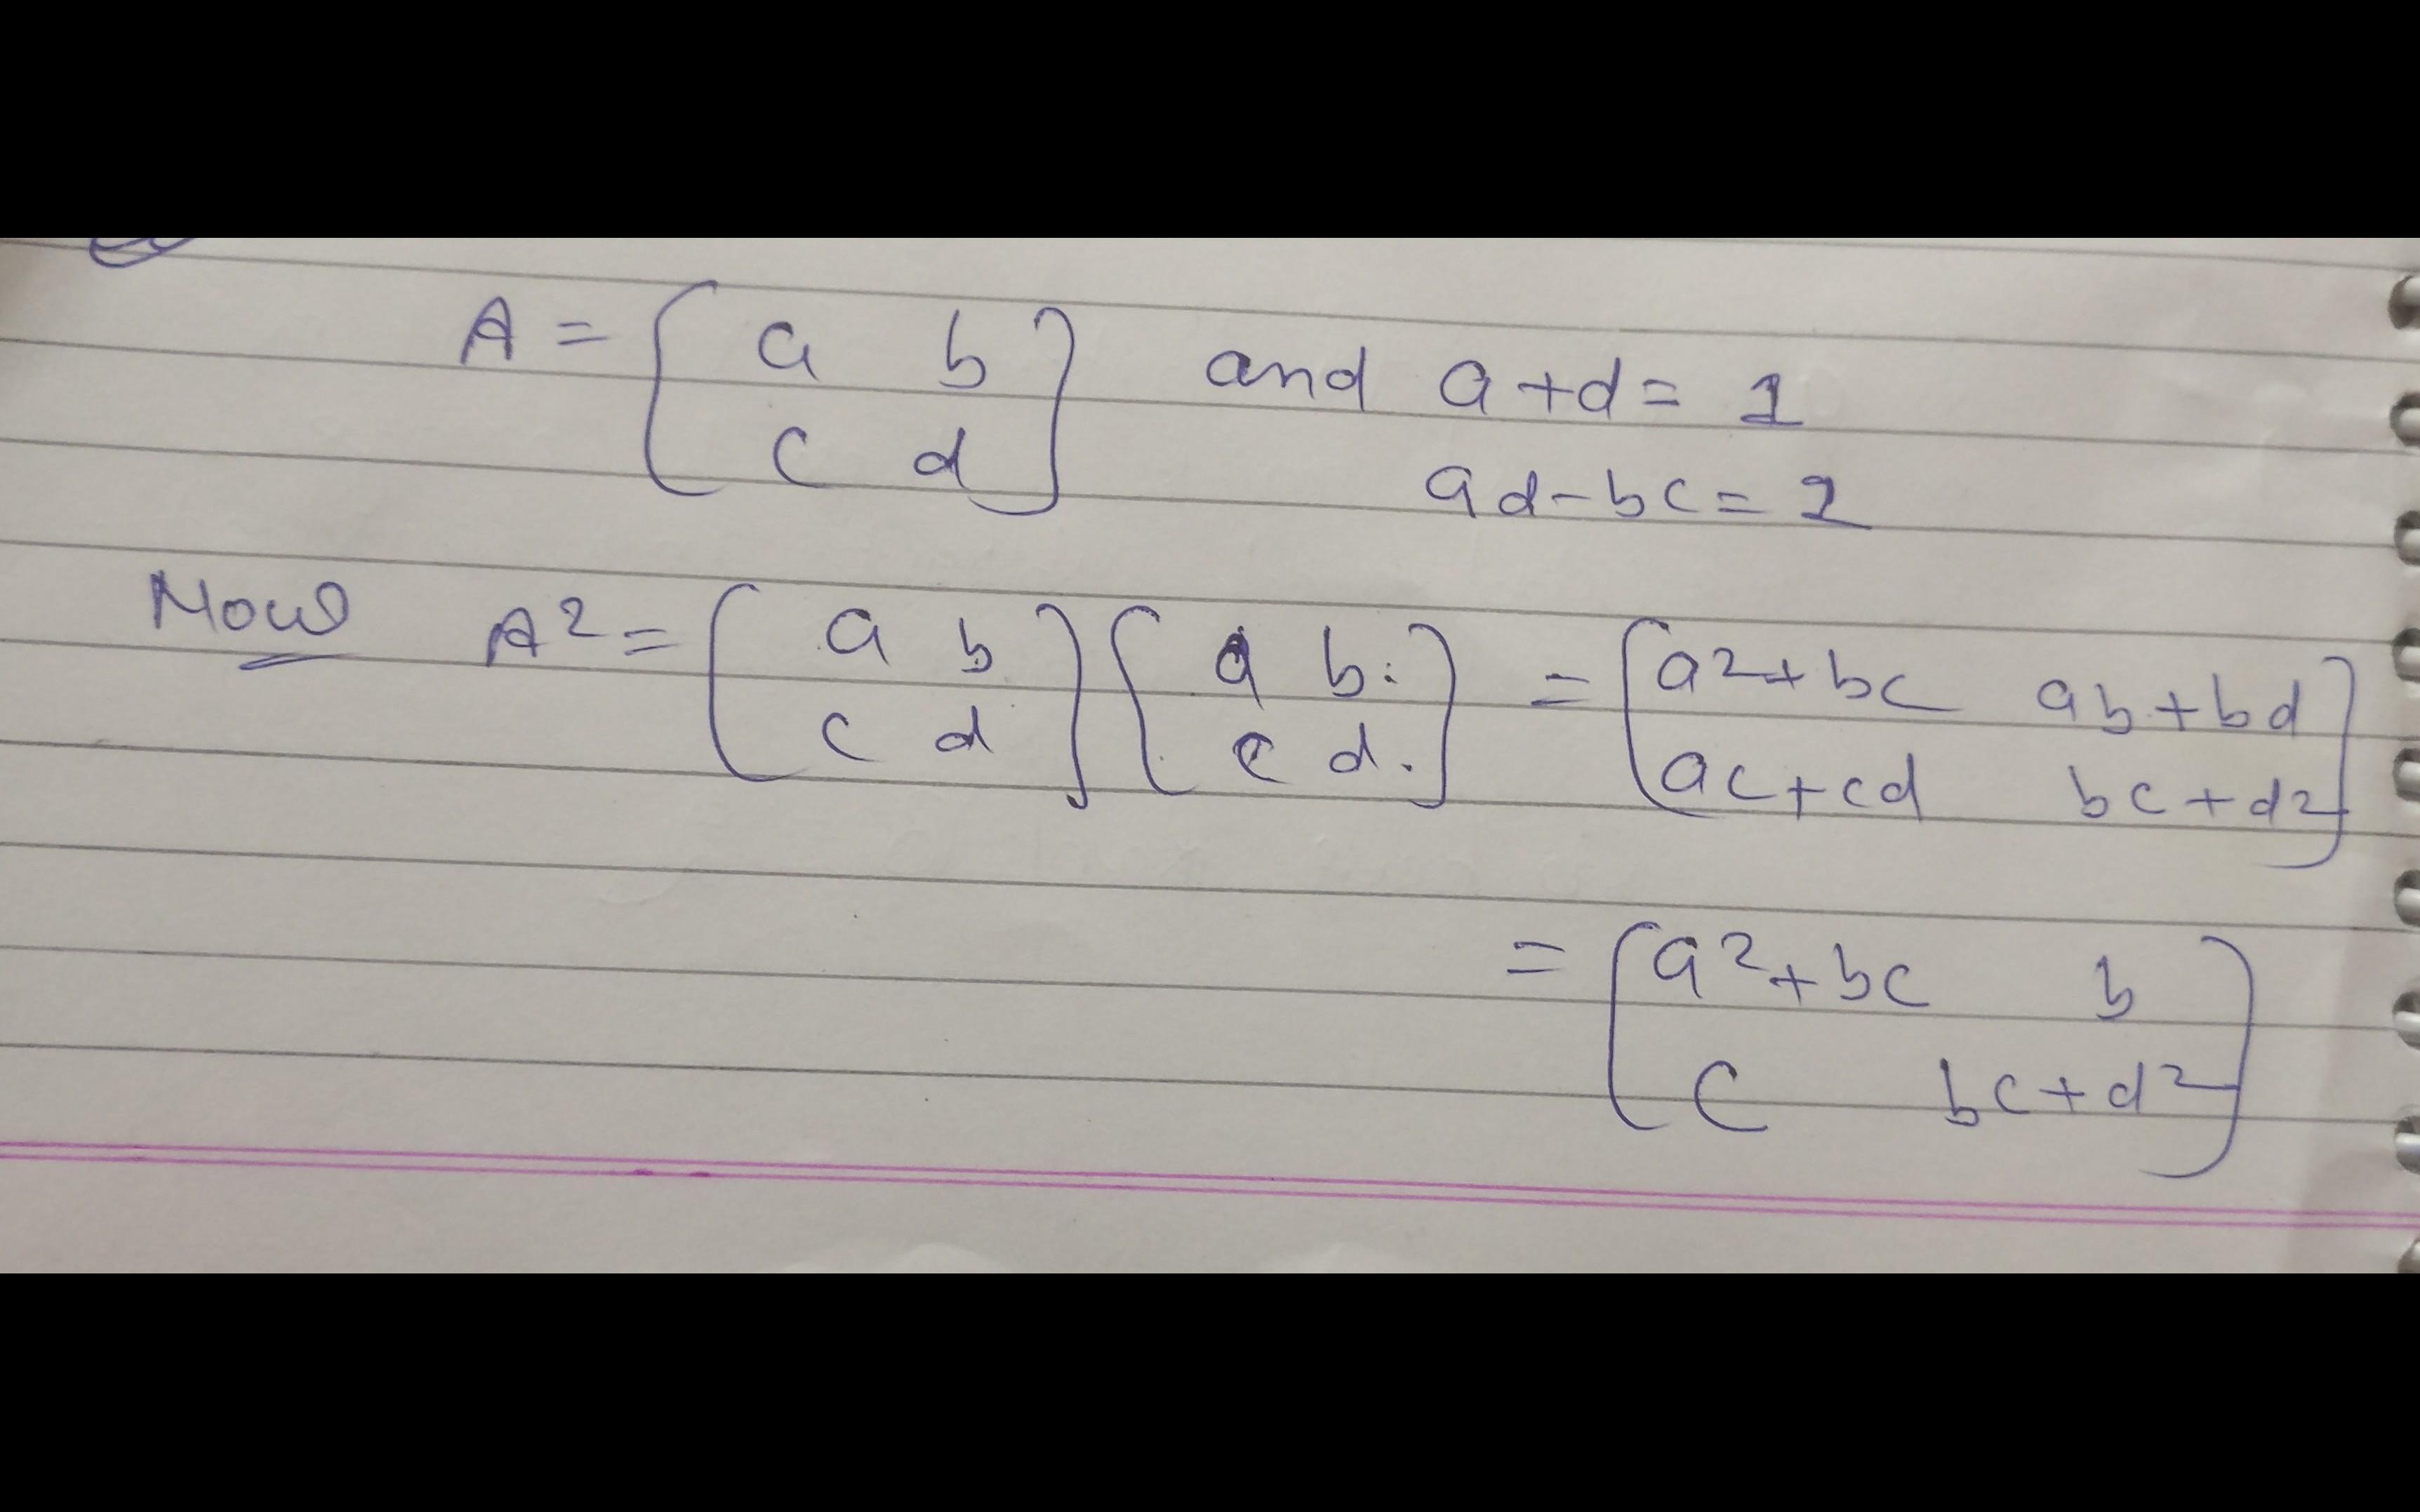 A = [ a b ; c d ] and a + d = 1
ad - bc = 1
Now A² = [ a b ; c d ] [ a b ; c d ] = [ a²+bc ab+bd ; ac+cd bc+d² ]
= [ a²+bc b ; c bc+d² ]